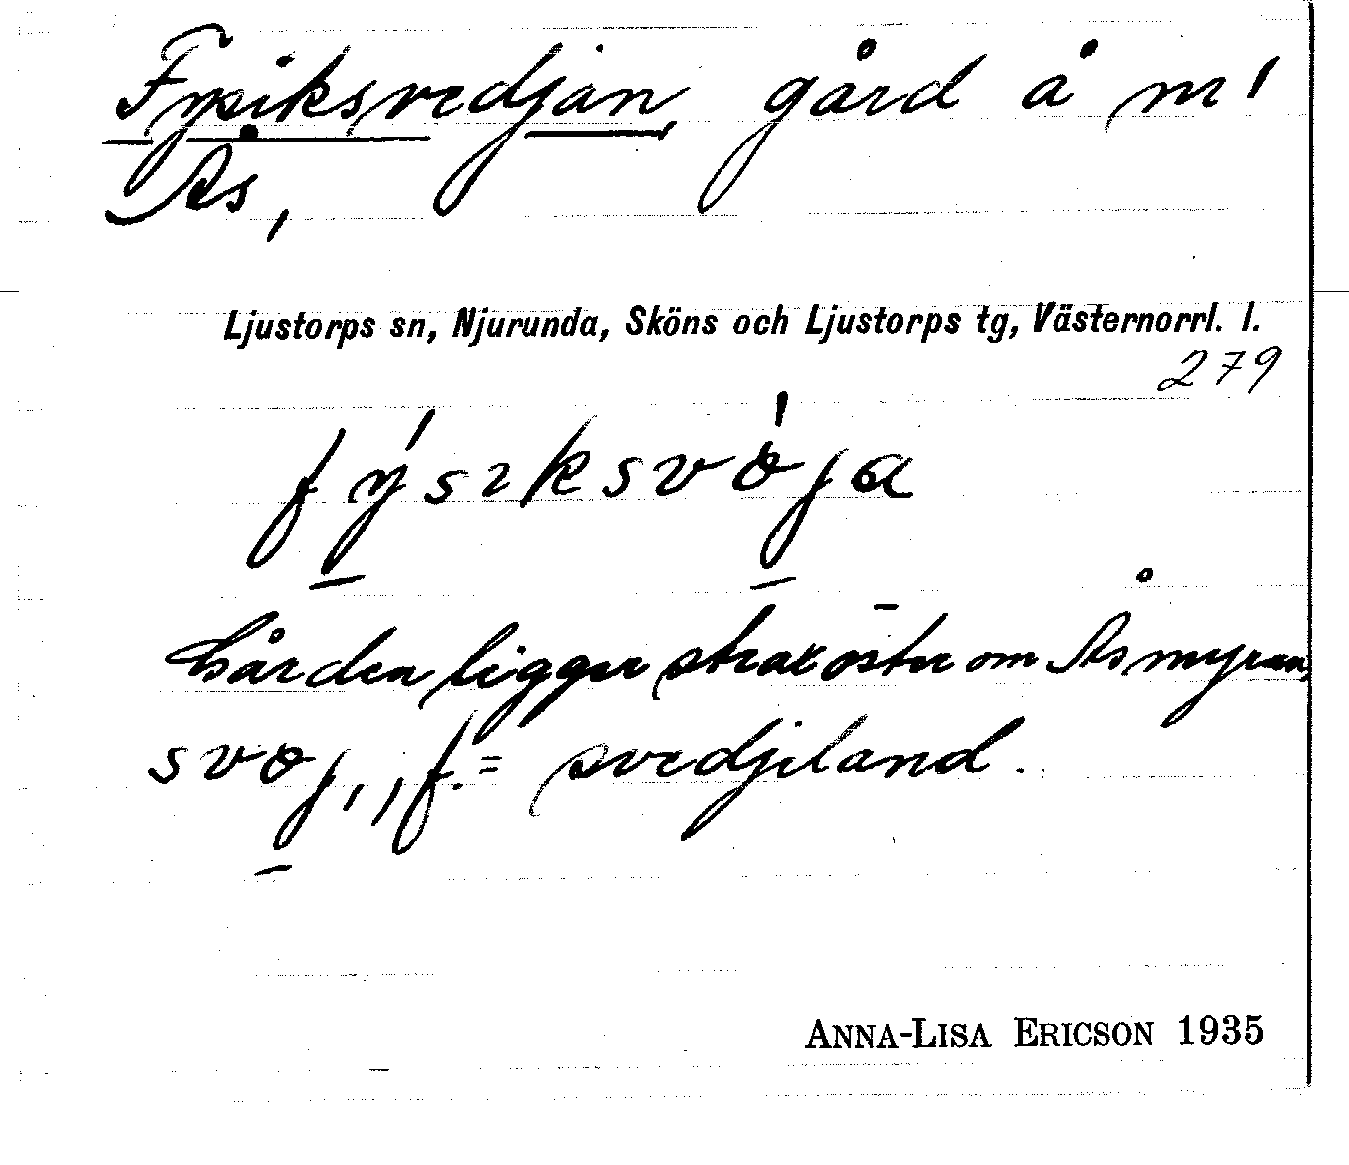 Fysiksvedjan, gård å nr 1
Ås,
Ljustorps sn, Njurunda, Sköns och Ljustorps tg, Västernorrl. l.
279
fýsıksvöja
Gården ligger strax öster om Åsmyran,
svöj, , f. = svedjeland.
ANNA-LISA ERICSON 1935